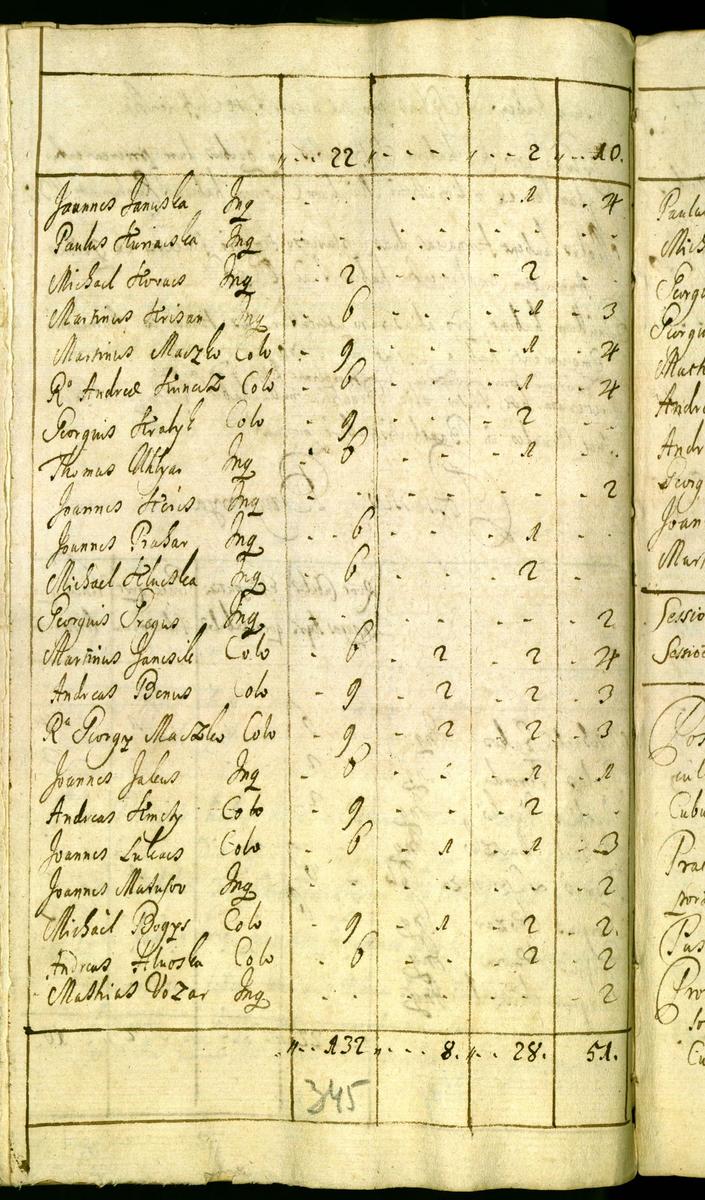 " - - 22 " - - - " - - 2 " - - 10.
Joannes Januska Inq - - - - - 1 - 4
Paulus Huniacska Inq
Michael Kovacs Inq - 2 - - - 2 - -
Martinus Krisan Inq - 6 - - - 1 - 3
Martinus Maczko Colo - 9 - - - 1 - 4
Ra Andreæ Kuncz Colo - 6 - - - 1 - 4
Georgius Kralyk Colo - 9 - - - 2 - -
Thomas Uhlyar Inq - 6 - - - 1 - -
Joannes Heris Inq - - - - - - - 2
Joannes Prahar Inq - - 6 - - - 1 - -
Michael Hluska Inq 6 - - - 2 - -
Georgius Gregus Inq - - - - - - - 2
Martinus Jancsik Colo - 6 - 2 - 2 - 4
Andreas Benus Colo - 9 - 2 - 2 - 3
Ra Georgy Maczko Colo - 9 - 2 - 2 - 3
Joannes Jakus Inq - 8 - - - 1 - 1
Andreas Kmety Colo - 9 - - - 2 - -
Joannes Lukacs Colo - 6 - 1 - 1 - 3
Joannes Matusov Inq - - - - - - - 2
Michaël Bogys Colo - 9 - 1 - 2 - 2.
Andreas Hluoska Colo - 6 - - - 2 - 2
Mathias Vozar Inq - - - - - - - 2
" - - 132 " - - - 8. " - - 28. 51.
345